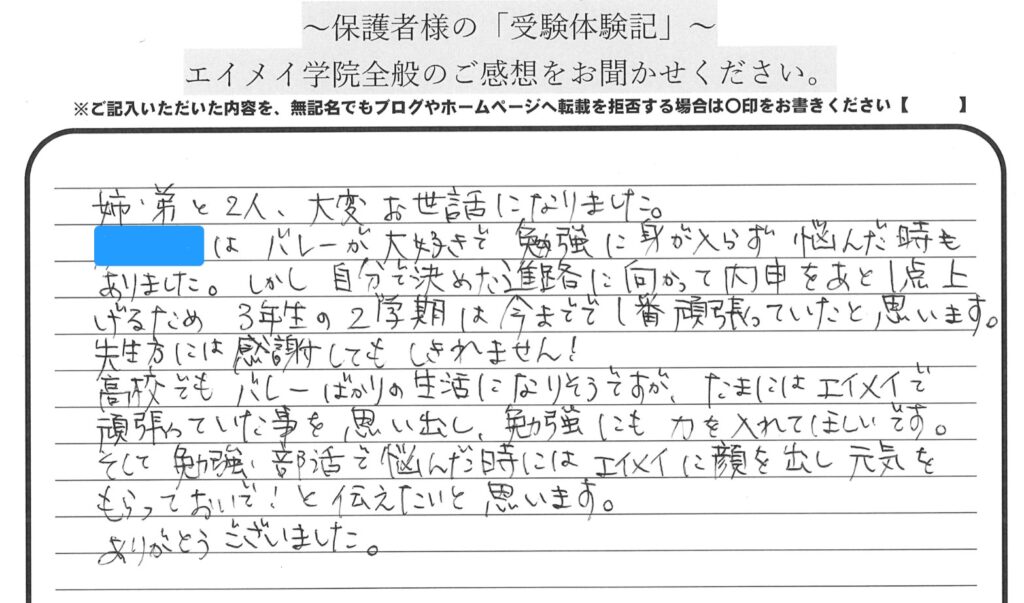 ～保護者様の「受験体験記」～
エイメイ学院全般のご感想をお聞かせください。
※ご記入いただいた内容を、無記名でもブログやホームページへ転載を拒否する場合は〇印をお書きください【　　　】
姉・弟と2人、大変お世話になりました。
はバレーが大好きで勉強に身が入らず悩んだ時も
ありました。しかし自分で決めた進路に向かって内申をあと1点上
げるため3年生の2学期は今までで1番頑張っていたと思います。
先生方には感謝してもしきれません！
高校でもバレーばかりの生活になりそうですが、たまにはエイメイで
頑張っていた事を思い出し、勉強にも力を入れてほしいです。
そして勉強、部活で悩んだ時にはエイメイに顔を出し元気を
もらっておいで！と伝えたいと思います。
ありがとうございました。